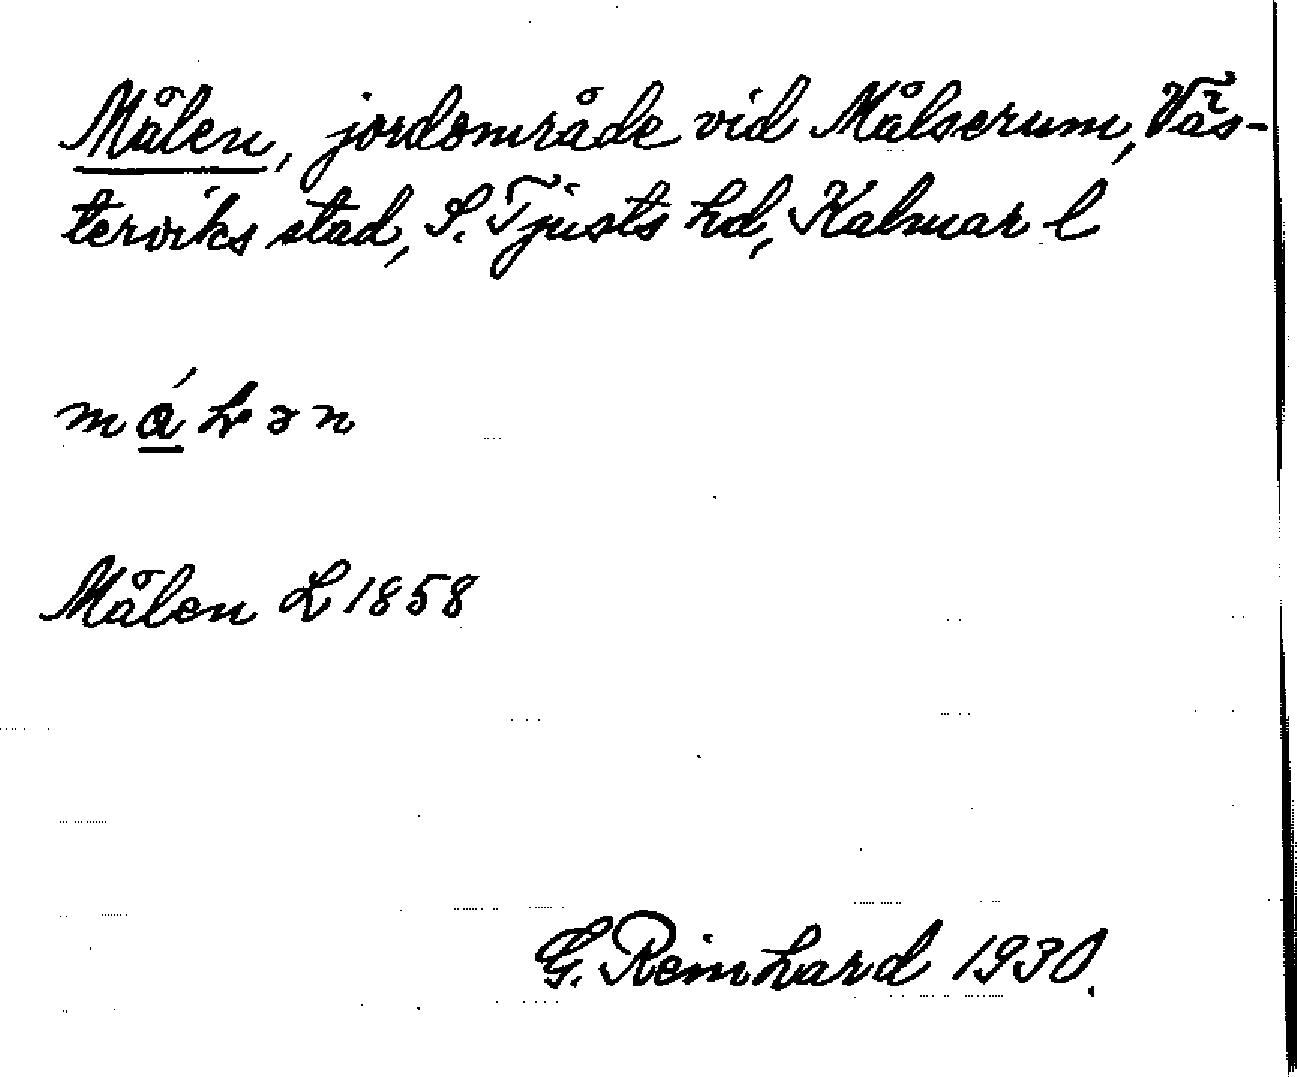 Målen, jordområde vid Målserum, Väs-
terviks stad, S. Tjusts hd, Kalmar l
Målen L 1858
G. Reinhard 1930.